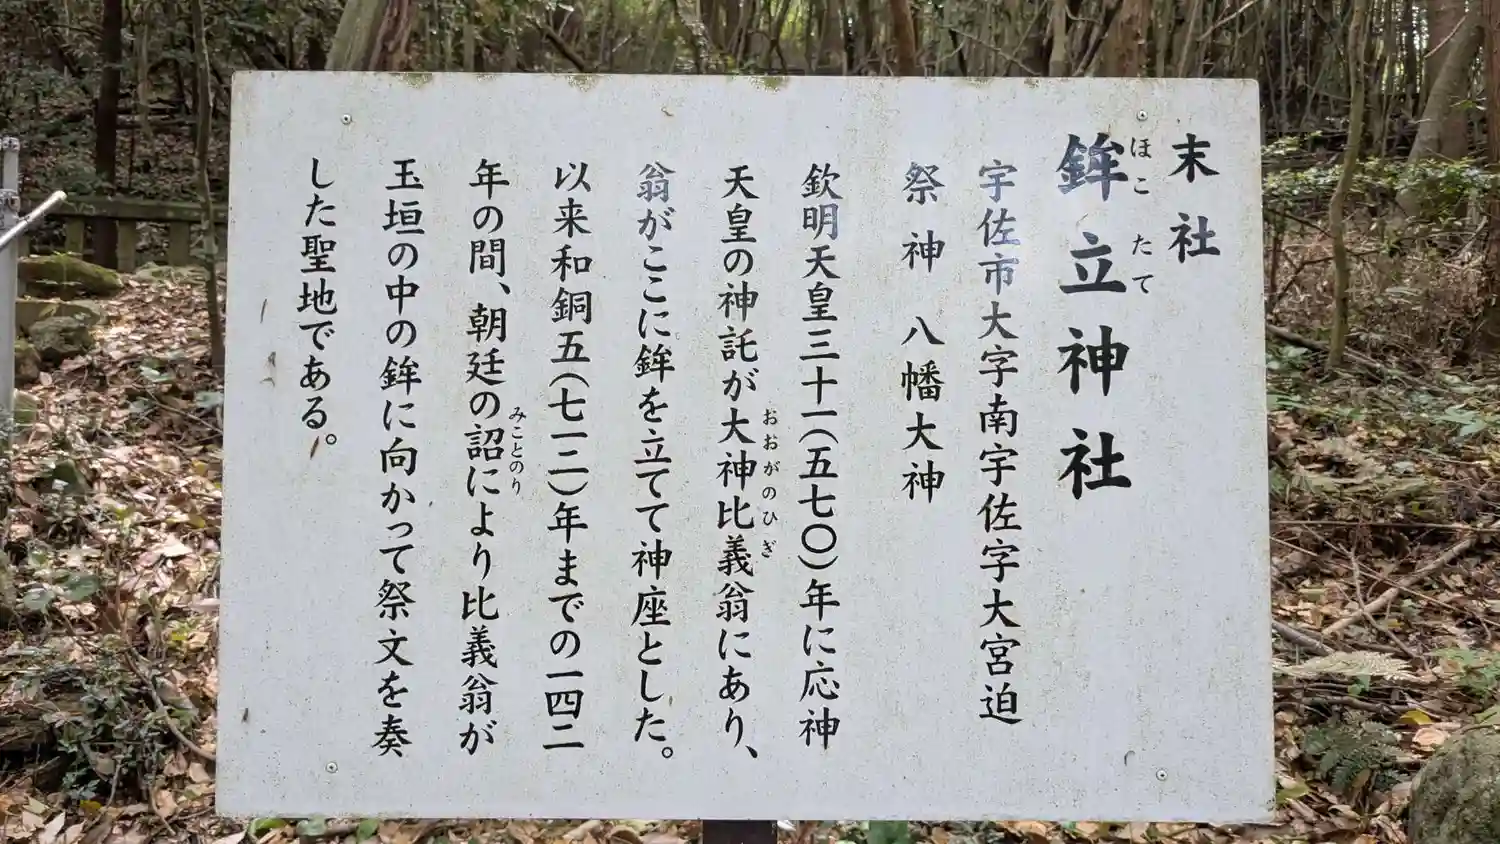 末社
鉾立神社
ほこ たて
宇佐市大字南宇佐字大宮迫
祭神 八幡大神
欽明天皇三十一(五七〇)年に応神
天皇の神託が大神比義翁にあり、
おおがのひぎ
翁がここに鉾を立てて神座とした。
以来和銅五(七一二)年までの一四二
年の間、朝廷の詔により比義翁が
みことのり
玉垣の中の鉾に向かって祭文を奏
した聖地である。